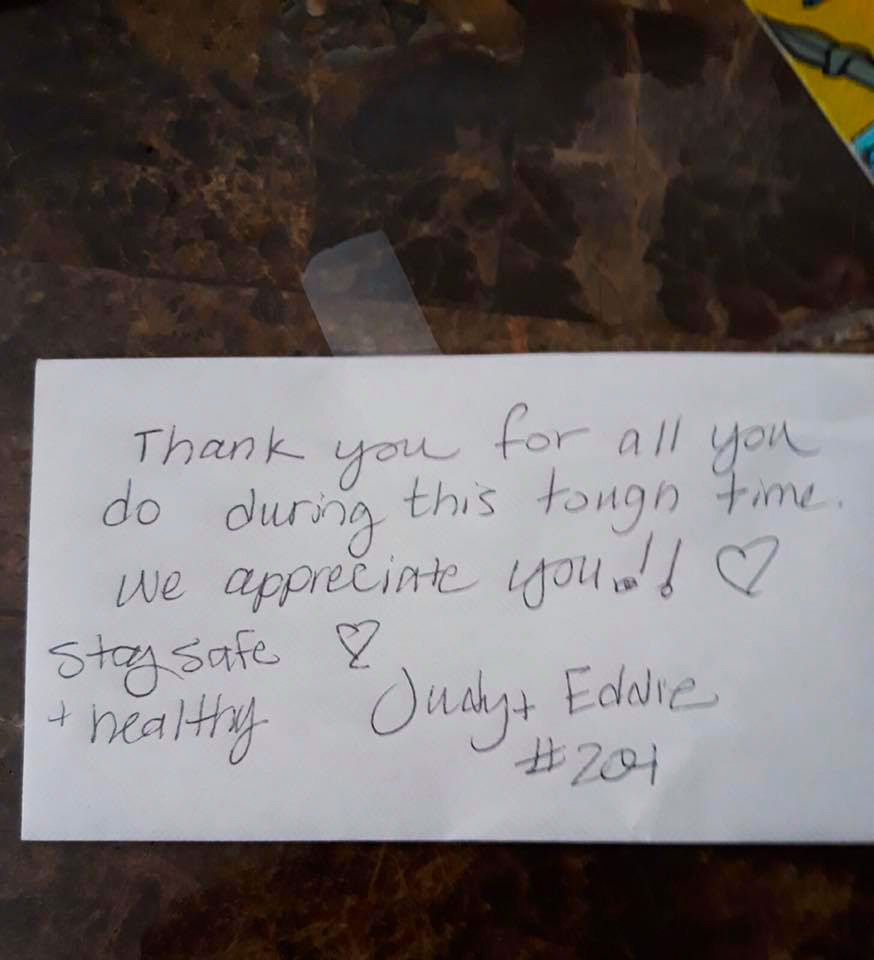 Thank you for all you
do during this tough time.
we appreciate you!! ♡
stay safe ♡
+ healthy
Judy + Eddie
#201